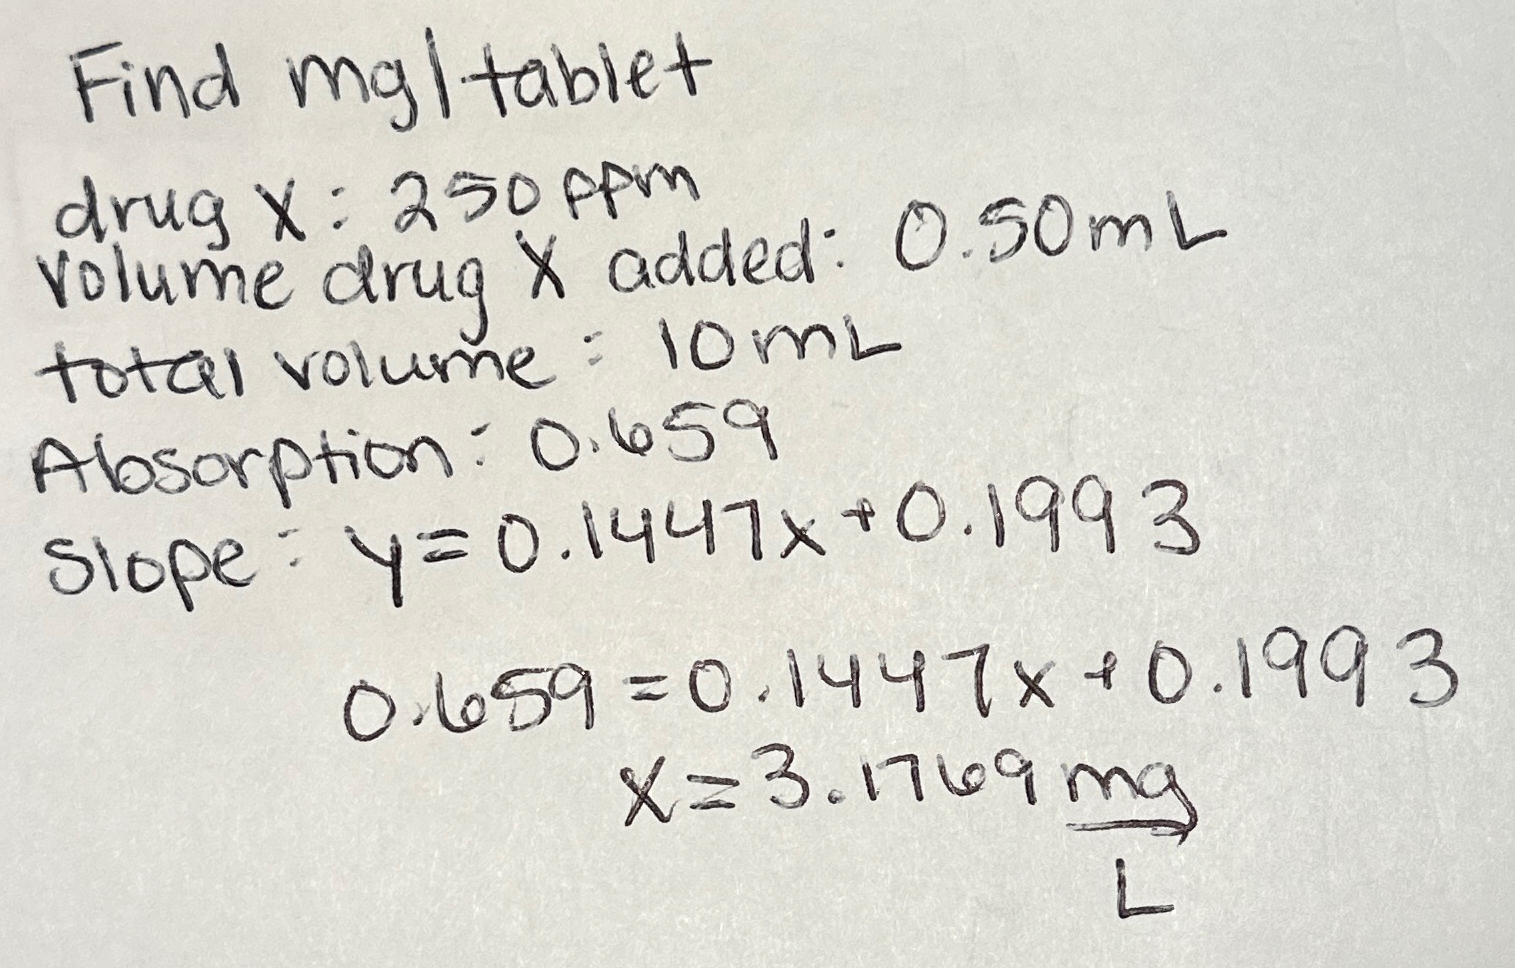 Find mg/tablet
drug X: 250 ppm
volume drug X added: 0.50 mL
total volume: 10 mL
Absorption: 0.659
Slope: y=0.1447x+0.1993
0.659=0.1447x+0.1993
x=3.1769 mg
L